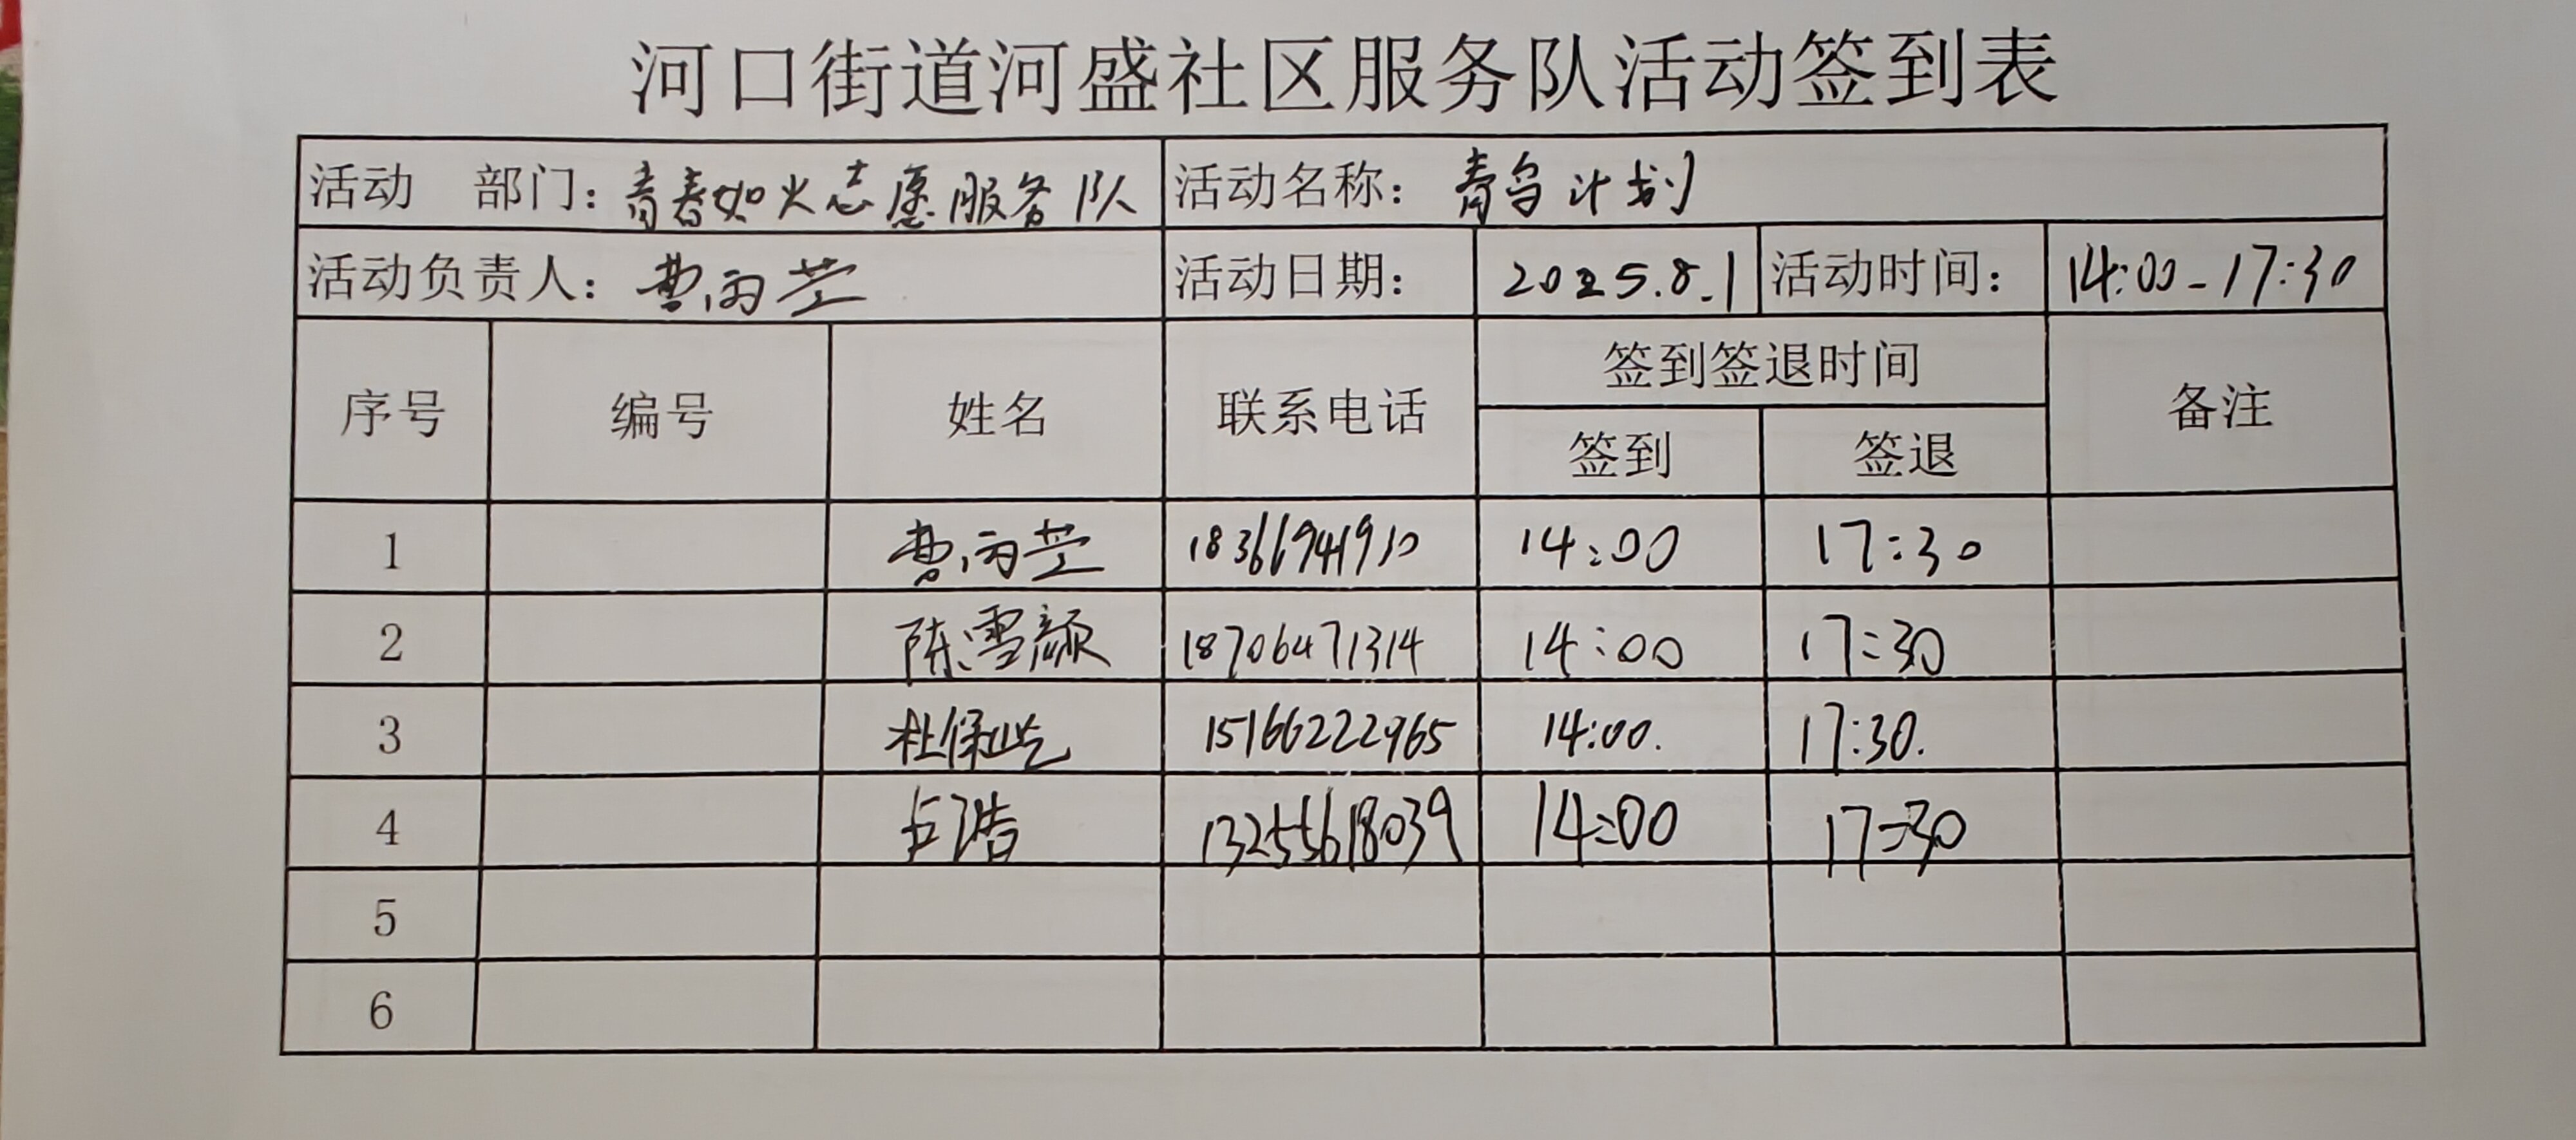 河口街道河盛社区服务队活动签到表
活动 部门：青春如火志愿服务队 活动名称：青鸟计划
活动负责人：曹雨芷 活动日期： 2025.8.1 活动时间： 14:00-17:30
序号 编号 姓名 联系电话 签到签退时间 备注
签到 签退
1 曹雨芷 18366941910 14:00 17:30
2 陈雪颜 18706471314 14:00 17:30
3 15166222965 14:00. 17:30.
4 13255618039 14:00 17:30
5
6